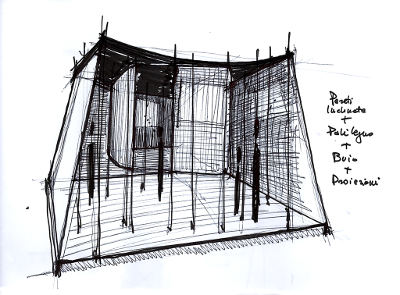 Pareti
Inclinate
+
Pali legno
+
Buio
+
Proiezioni